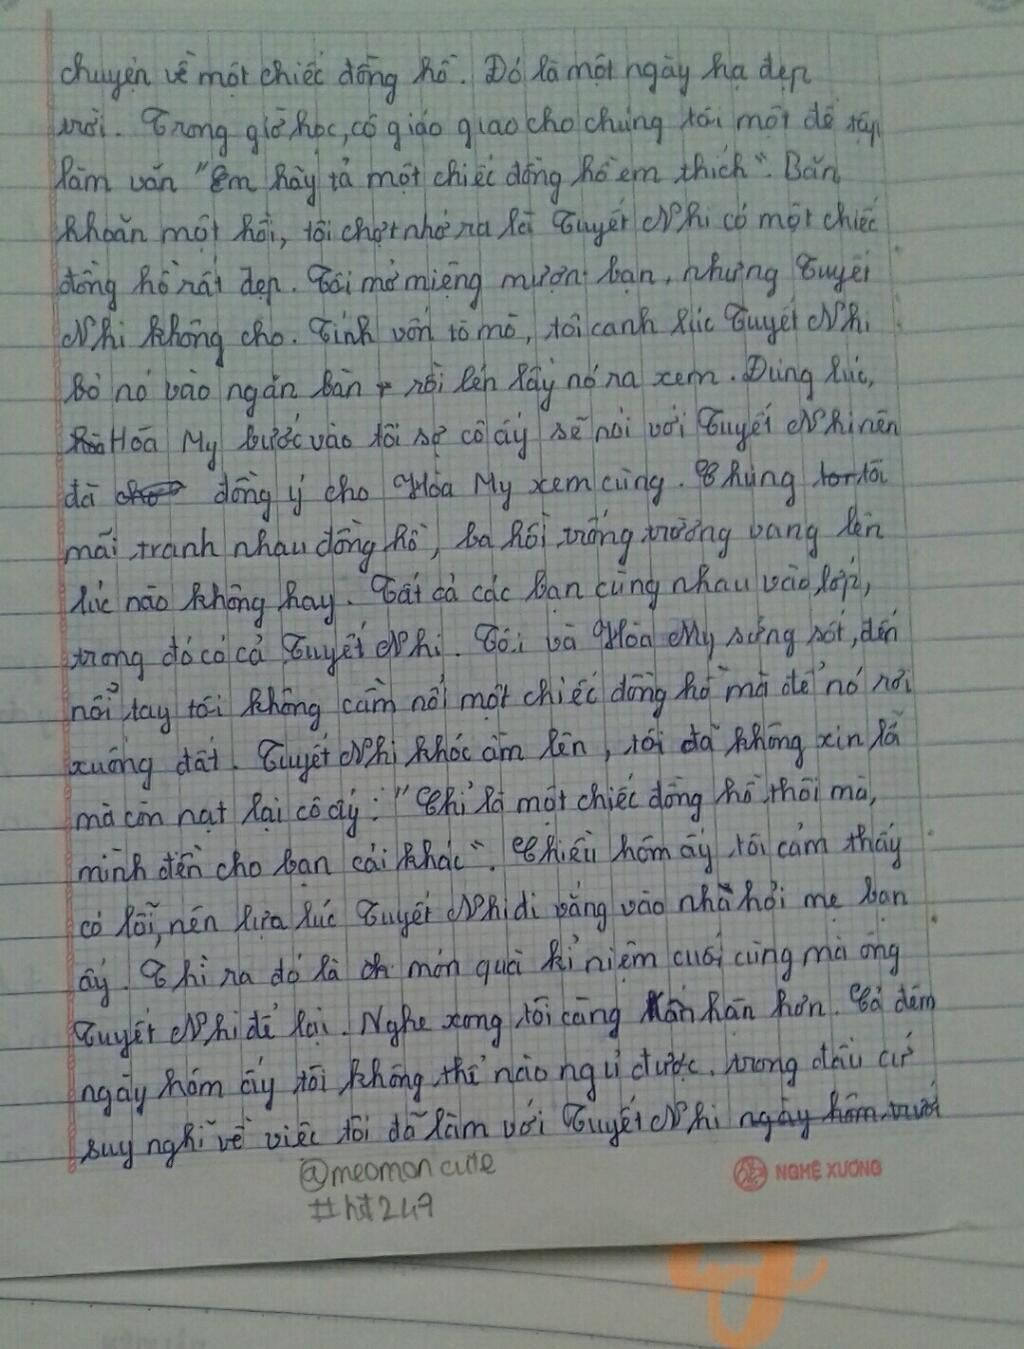 chuyện về một chiếc đồng hồ. Đó là một ngày hạ đẹp
trời. Trong giờ học, cô giáo giao cho chúng tôi một đề tập
làm văn "Em hãy tả một chiếc đồng hồ em thích". Băn
khoăn một hồi, tôi chợt nhớ ra là Tuyết Nhi có một chiếc
đồng hồ rất đẹp. Tôi mở miệng mượn bạn, nhưng Tuyết
Nhi không cho. Tính vốn tò mò, tôi canh lúc Tuyết Nhi
bỏ nó vào ngăn bàn rồi lén lấy nó ra xem. Đúng lúc,
Hòa My bước vào tôi sợ cô ấy sẽ nói với Tuyết Nhi nên
đã đồng ý cho Hòa My xem cùng. Chúng tôi
mãi tranh nhau đồng hồ, ba hồi trống trường vang lên
lúc nào không hay. Tất cả các bạn cùng nhau vào lớp,
trong đó có cả Tuyết Nhi. Tôi và Hòa My sửng sốt, đến
nổi tay tôi không cầm nổi một chiếc đồng hồ mà để nó rơi
xuống đất. Tuyết Nhi khóc ầm lên, tôi đã không xin lỗi
mà còn nạt lại cô ấy: "Chỉ là một chiếc đồng hồ thôi mà,
mình đền cho bạn cái khác". Chiều hôm ấy tôi cảm thấy
có lỗi, nên lựa lúc Tuyết Nhi đi vắng vào nhà hỏi mẹ bạn
ấy. Thì ra đó là món quà kỉ niệm cuối cùng mà ông
Tuyết Nhi để lại. Nghe xong tôi càng hơn. Cả đêm
ngày hôm ấy tôi không thể nào ngủ được, trong đầu cứ
suy nghĩ về việc tôi đã làm với Tuyết Nhi ngày hôm trước
@meomoncute
#hđ247
NGHỆ XƯƠNG